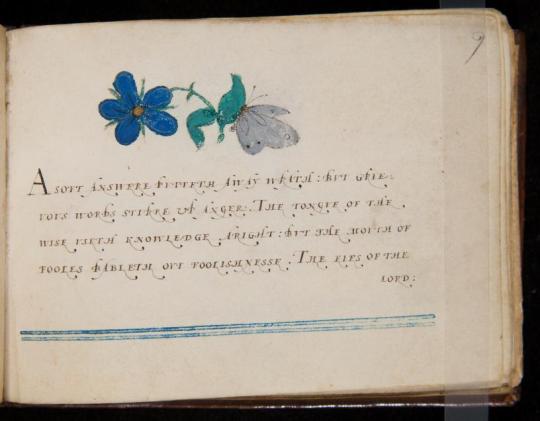 9
A SOFT ANSWERE PUTTETH AWAY WRATH: BUT GRIE-
VOUS WORDS STIRRE UP ANGER. THE TONGUE OF THE
WISE USETH KNOWLEDGE ARIGHT: BUT THE MOUTH OF
FOOLES BABLETH OUT FOOLISHNESSE. THE EIES OF THE
LORD: